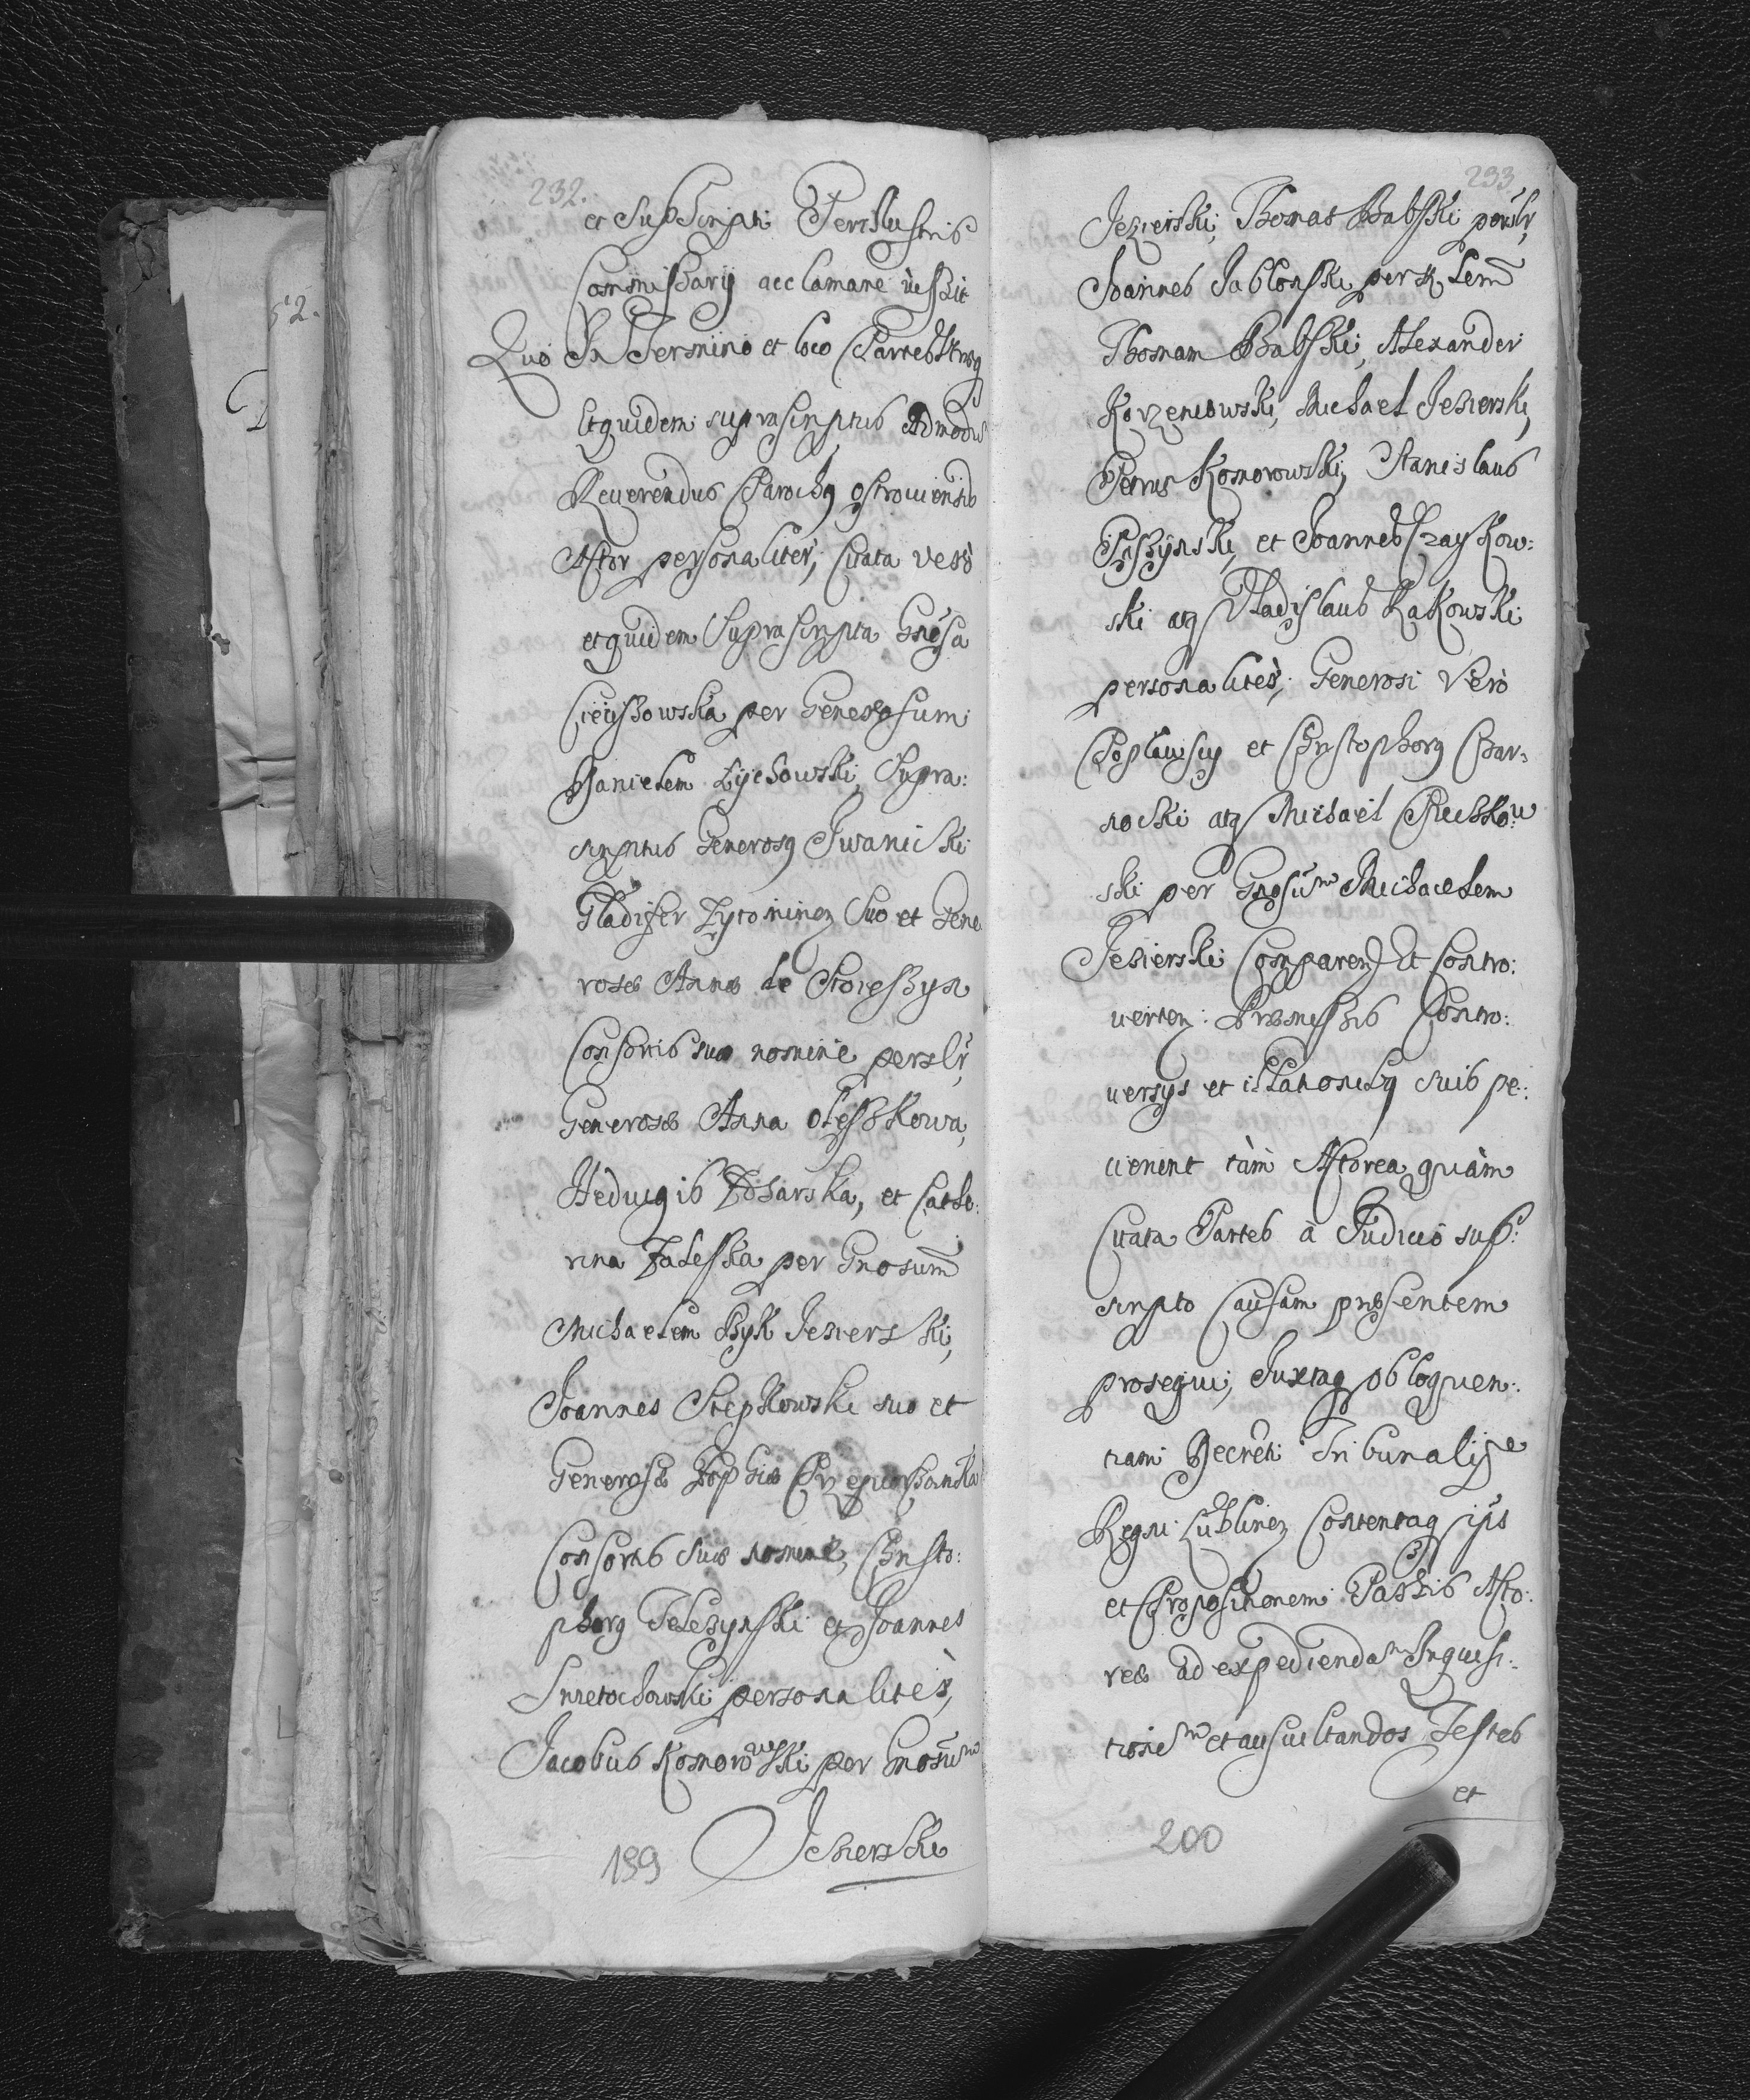 232.
et Subscripti Perillustris
Commissarij acclamare iussit
Quo In Termino et loco Partes Utraq
Et quidem suprascriptus Admodu
Reuerendus Parochq Ostrouiensis
Actor personaliter, Citata verò
et quidem Suprascripta Gnosa
per Generosum
Danielem Zychowski, Supra:
scriptus Generosq Iwanicki
Gladifer Zytominen Suo et Gene
rosæ Annæ de
Consortis suæ nomine persolr,
Generosæ Anna Oleszkowa,
Heduigis Zdzarska, et Cathe:
rina Zaleska per Gnosum
Michaelem Byk Jezierski,
Joannes Stepkowski suo et
Generosæ Zophiæ
Consortis suæ nomine, Christo:
phorq Telezynski et Joannes
Swietochowski personaliter,
Jacobus Komorowski per Gnosum
Jezierski
199
233
Jezierski, Thomas Babski persolr,
Joannes Jablonski per
Thomam Babski, Alexander
Korzeniowski, Michael Jezierski,
Petrus Komorowski, Stanislaus
et Joannes Czaykow:
ski atq Vladislaus Rakowski
personaliter, Generosi Verò
Poplawscy et Christophorq Char:
nocki atq Michael
ski per Gnosum Michaelem
Jezierski Comparen Et Contro:
uerten: Præmissis Contro:
uersys et illationibq suis pe:
tierint tàm Actorea quàm
Citata Partes à Judicio sub:
scripto Causam præsentem
prosequi, Juxtaq obloquen:
tiam Decreti Tribunalis
Regni Lublinen Contentaq ejus
et Propositionem Partis Acto:
reæ ad expediendam Inquisi:
tionem et ausultandos Testes
et
200
52.